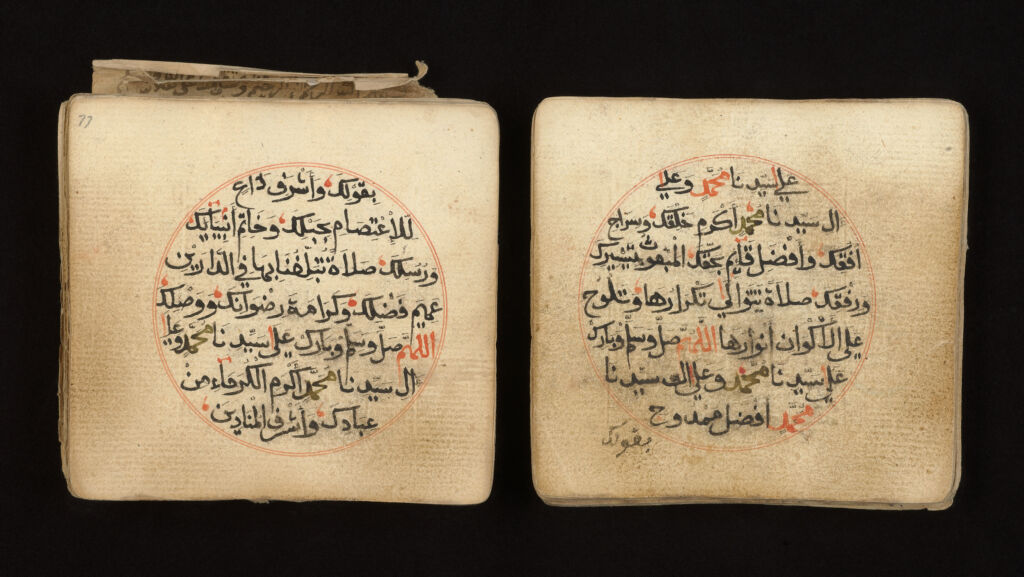 على سيدنا محمد وعلى
ال سيدنا محمد اكرم خلقك وسراج
افقك وأفضل قايم بحقك المبعوث بتيسيرك
ورفقك صلاة يتوالى تكرارها وتلوح
على الأكوان أنوارها اللهم صل وسلم وبارك
على سيدنا محمد وعلى ال سيدنا
محمد أفضل ممدوح
بقولك
77
بقولك وأشرف داع
للاعتصام بحبلك وخاتم أنبيايك
ورسلك صلاة تبلغنا بها في الدارين
عميم فضلك وكرامة رضوانك ووصلك
اللهم صل وسلم وبارك على سيدنا محمد وعلى
ال سيدنا محمد أكرم الكرماء من
عبادك وأشرف المنادين